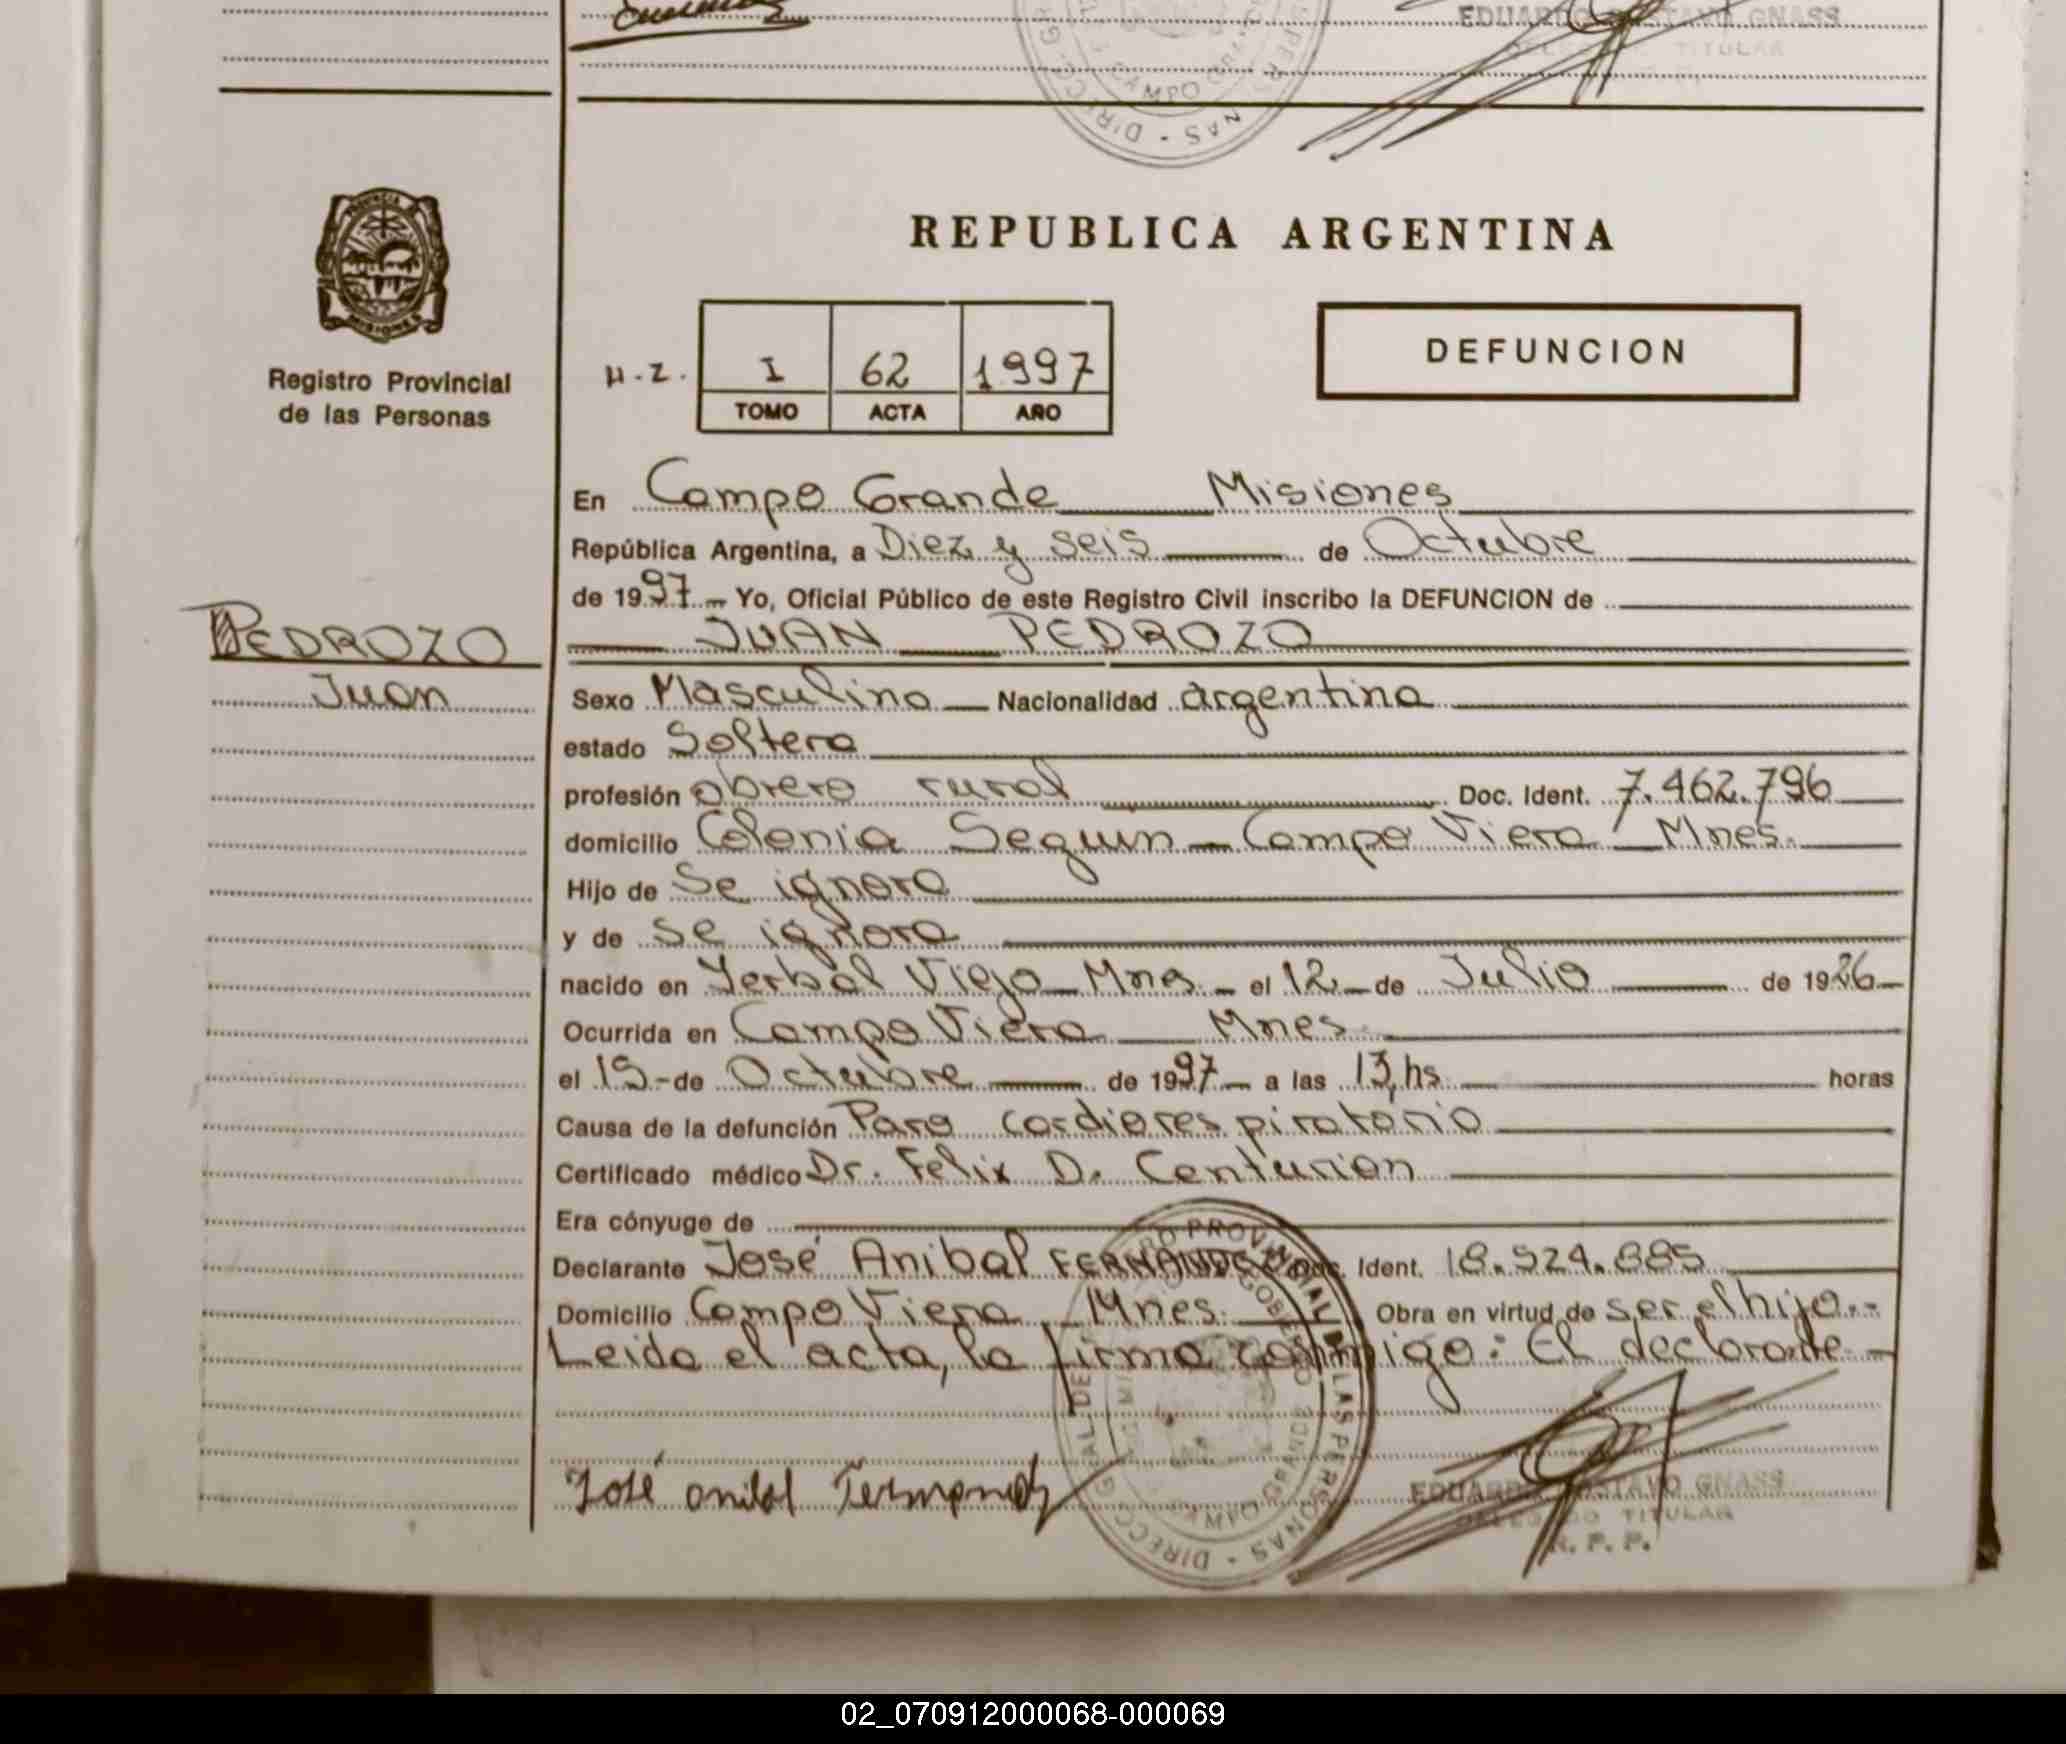 EDUARDO GUSTAVO GNASS
DELEGADO TITULAR
CAMPO GRANDE
REPUBLICA ARGENTINA
PROVINCIA DE
MISIONES
Registro Provincial
de las Personas
H.Z. I 62 1997
TOMO ACTA AÑO
DEFUNCION
En Campo Grande Misiones
República Argentina, a Diez y seis de Octubre
de 1997 Yo, Oficial Público de este Registro Civil inscribo la DEFUNCION de
JUAN PEDROZO
PEDROZO
Juan
Sexo Masculino Nacionalidad argentina
estado Soltero
profesión obrero rural Doc. Ident. 7.462.796
domicilio Colonia Seguin Campo Viera Mnes.
Hijo de Se ignora
y de se ignora
nacido en Yerbal Viejo Mnes. el 12 de Julio de 1926
Ocurrida en Campo Viera Mnes.
el 15 de Octubre de 1997 a las 13,hs horas
Causa de la defunción Paro cardiorespiratorio
Certificado médico Dr. Felix D. Centurion
Era cónyuge de
Declarante José Anibal FERNANDEZ Doc. Ident. 18.524.885
Domicilio Campo Viera Mnes. Obra en virtud de ser el hijo.-
Leida el acta, la firma conmigo: El declarante
José anibal Fernandez
EDUARDO GUSTAVO GNASS
DELEGADO TITULAR
R. P. P.
CAMPO GRANDE
02_070912000068-000069